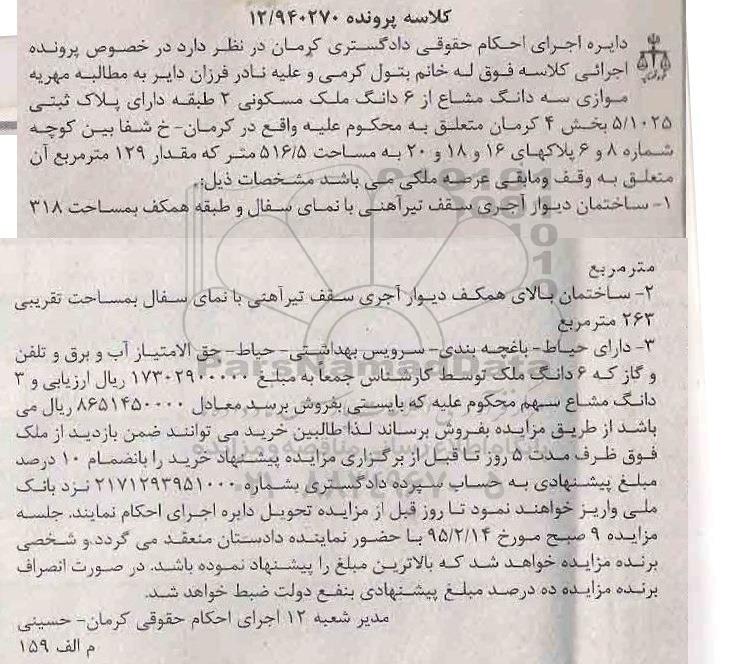 کلاسه پرونده ۱۲/۹۴۰۲۷۰
دایره اجرای احکام حقوقی دادگستری کرمان در نظر دارد در خصوص پرونده
اجرائی کلاسه فوق له خانم بتول کرمی و علیه نادر فرزان دایر به مطالبه مهریه
موازی سه دانگ مشاع از ۶ دانگ ملک مسکونی ۲ طبقه دارای پلاک ثبتی
۵/۱۰۲۵ بخش ۴ کرمان متعلق به محکوم علیه واقع در کرمان- خ شفا بین کوچه
شماره ۸ و ۶ پلاکهای ۱۶ و ۱۸ و ۲۰ به مساحت ۵۱۶/۵ متر که مقدار ۱۲۹ مترمربع آن
متعلق به وقف ومابقی عرصه ملکی می باشد مشخصات ذیل:.
۱- ساختمان دیوار آجری سقف تیرآهنی با نمای سفال و طبقه همکف بمساحت ۳۱۸
مترمربع
۲- ساختمان بالای همکف دیوار آجری سقف تیرآهنی با نمای سفال بمساحت تقریبی
۲۶۳ مترمربع
۳- دارای حیاط- باغچه بندی- سرویس بهداشتی- حیاط- حق الامتیاز آب و برق و تلفن
و گاز که ۶ دانگ ملک توسط کارشناس جمعا به مبلغ ۱۷۳۰۲۹۰۰۰۰۰ ریال ارزیابی و ۳
دانگ مشاع سهم محکوم علیه که بایستی بفروش برسد معادل ۸۶۵۱۴۵۰۰۰۰ ریال می
باشد از طریق مزایده بفروش برساند لذا طالبین خرید می توانند ضمن بازدید از ملک
فوق ظرف مدت ۵ روز تا قبل از برگزاری مزایده پیشنهاد خرید را بانضمام ۱۰ درصد
مبلغ پیشنهادی به حساب سپرده دادگستری بشماره ۲۱۷۱۲۹۳۹۵۱۰۰۰ نزد بانک
ملی واریز خواهند نمود تا روز قبل از مزایده تحویل دایره اجرای احکام نمایند. جلسه
مزایده ۹ صبح مورخ ۹۵/۲/۱۴ با حضور نماینده دادستان منعقد می گردد.و شخصی
برنده مزایده خواهد شد که بالاترین مبلغ را پیشنهاد نموده باشد. در صورت انصراف
برنده مزایده ده درصد مبلغ پیشنهادی بنفع دولت ضبط خواهد شد.
مدیر شعبه ۱۲ اجرای احکام حقوقی کرمان- حسینی
م الف ۱۵۹
ParsNamadData